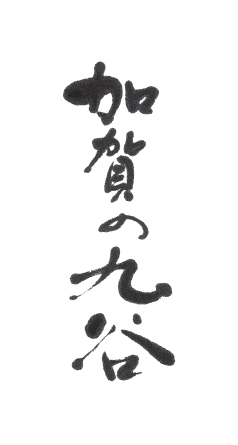 加賀の九谷